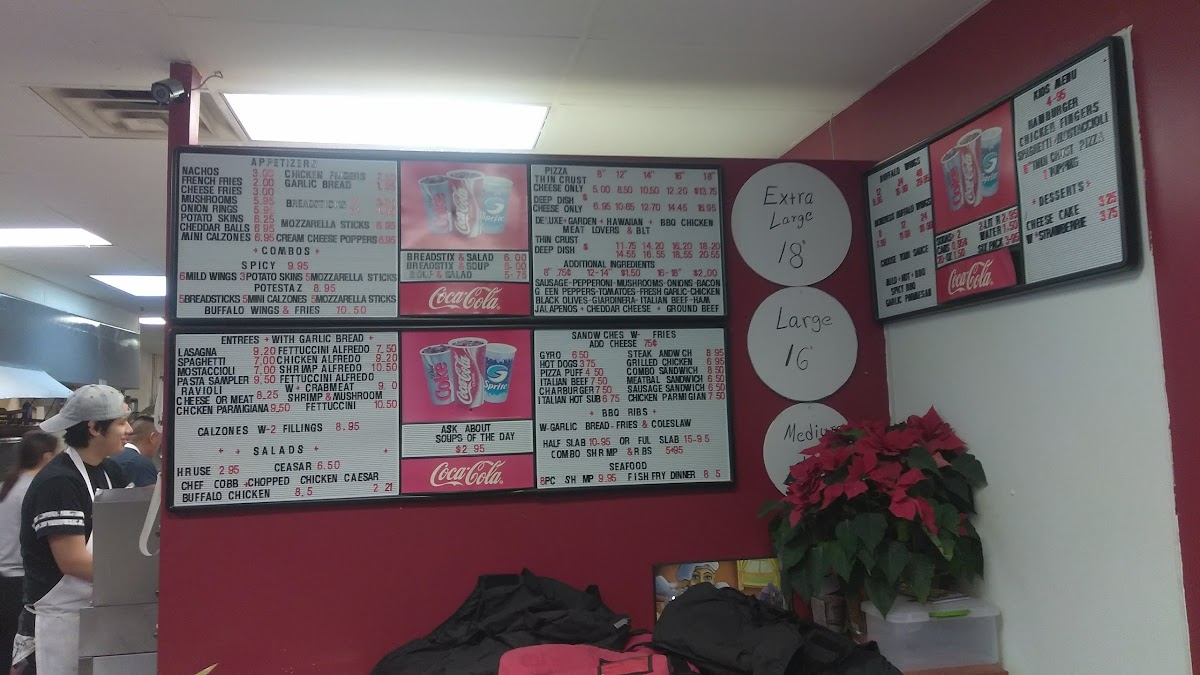 APPETIZERZ
NACHOS 3.00
FRENCH FRIES 2.00
CHEESE FRIES 3.00
MUSHROOMS 5.95
ONION RINGS 5.95
POTATO SKINS 6.25
CHEDDAR BALLS 6.95
MINI CALZONES 6.95
CHICKEN FINGERS
GARLIC BREAD
BREADSTICKS
MOZZARELLA STICKS 6.95
CREAM CHEESE POPPERS 6.95
+COMBOS+
SPICY 9.95
6MILD WINGS 3POTATO SKINS 5MOZZARELLA STICKS
POTESTAZ 8.95
5BREADSTICKS 5MINI CALZONES 5MOZZARELLA STICKS
BUFFALO WINGS & FRIES 10.50
Coke Coca-Cola Sprite
BREADSTIX & SALAD 6.00
BREADSTIX & SOUP 5.00
SOUP & SALAD 5.75
Coca-Cola
PIZZA 8" 12" 14" 16" 18"
THIN CRUST
CHEESE ONLY 5.00 8.50 10.50 12.20 $13.75
DEEP DISH $
CHEESE ONLY 6.95 10.65 12.70 14.45 16.95
DE'UXE+GARDEN + HAWAIIAN + BBQ CHICKEN
MEAT LOVERS & BLT
THIN CRUST 11.75 14.20 16.20 18.20
DEEP DISH $ 14.55 16.55 18.55 20.55
ADDITIONAL INGREDIENTS
8" 75¢ 12-14" $1.50 16-18" $2.00
SAUSAGE-PEPPERONI-MUSHROOMS-ONIONS-BACON
G EEN PEPPERS-TOMATOES-FRESH GARLIC-CHICKEN
BLACK OLIVES-GIARDINERA-ITALIAN BEEF-HAM
JALAPENOS + CHEDDAR CHEESE + GROUND BEEF
ENTREES +WITH GARLIC BREAD+
LASAGNA 9.20
SPAGHETTI 7.00
MOSTACCIOLI 7.00
PASTA SAMPLER 9.50
RAVIOLI
CHEESE OR MEAT 8.25
CHCKEN PARMIGIANA 9.50
FETTUCCINI ALFREDO 7.50
CHICKEN ALFREDO 9.20
SHRIMP ALFREDO 10.50
FETTUCCINI ALFREDO
W+ CRABMEAT 9. 0
SHRIMP & MUSHROOM
FETTUCCINI 10.50
CALZONES W-2 FILLINGS 8.95
+ SALADS +
H RUSE 2.95 CEASAR 6.50
CHEF COBB +CHOPPED CHICKEN CAESAR
BUFFALO CHICKEN 8,5 2 21
Coke Coca-Cola Sprite
ASK ABOUT
SOUPS OF THE DAY
$2.95
Coca-Cola
SANDW CHES W- FRIES
ADD CHEESE 75¢
GYRO 6.50
HOT DOGS 3.75
PIZZA PUFF 4.50
ITALIAN BEEF 7.50
CHARBURGER 7.50
ITALIAN HOT SUB 6.75
STEAK SANDW CH 8.95
GRILLED CHICKEN 6.95
COMBO SANDWICH 8.50
MEATBAL SANDWICH 6.50
SAUSAGE SANDWICH 6.50
CHICKEN PARMIGIAN 7.50
+ BBQ RIBS +
W-GARLIC BREAD-FRIES & COLESLAW
HALF SLAB 10-95 OR FUL SLAB 15-9.5
COMBO SHR MP &RBS 5+95
SEAFOOD
8PC SH MP 9.95 FISH FRY DINNER 8 5
Extra
Large
18"
Large
16"
Medium
BUFFALO WINGS
12 24 48
BONELESS BUFFALO WINGS
CHOOSE YOUR SAUCE
MILD + HOT + BBQ
SPICY BBQ
GARLIC PARMESAN
Coca-Cola
KIDS MENU
4-95
HAMBURGER
CHICKEN FINGERS
SPAGHETTI/MOSTACCIOLI
8" THIN CRUST PIZZA
1 TOPPING
+ DESSERTS +
CHEESE CAKE 3.25
W+STRAWBERRIE 3.75